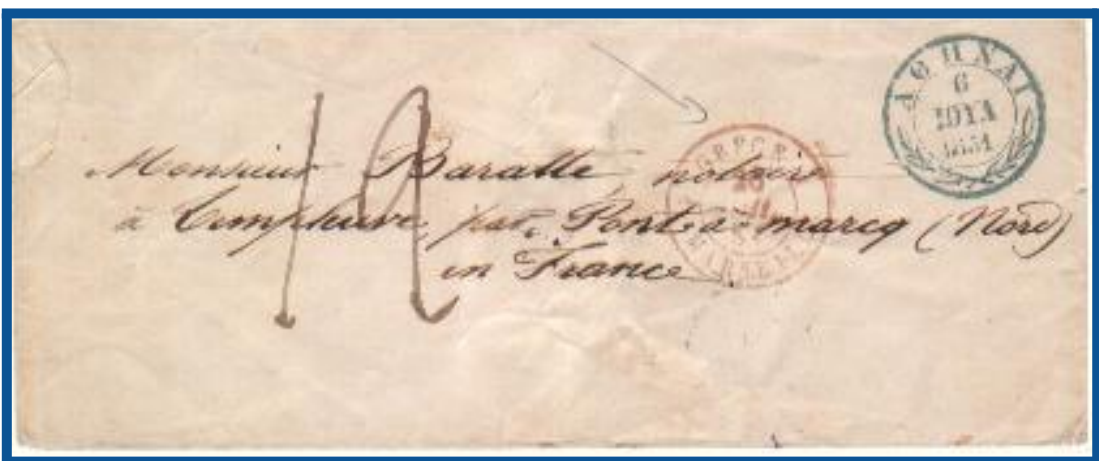 ΑΘΗΝΑΙ
6
ΙΟΥΛ
1851
12
Monsieur Baratte notaire
à Templeuve par Pont-à-marcq (Nord)
en France